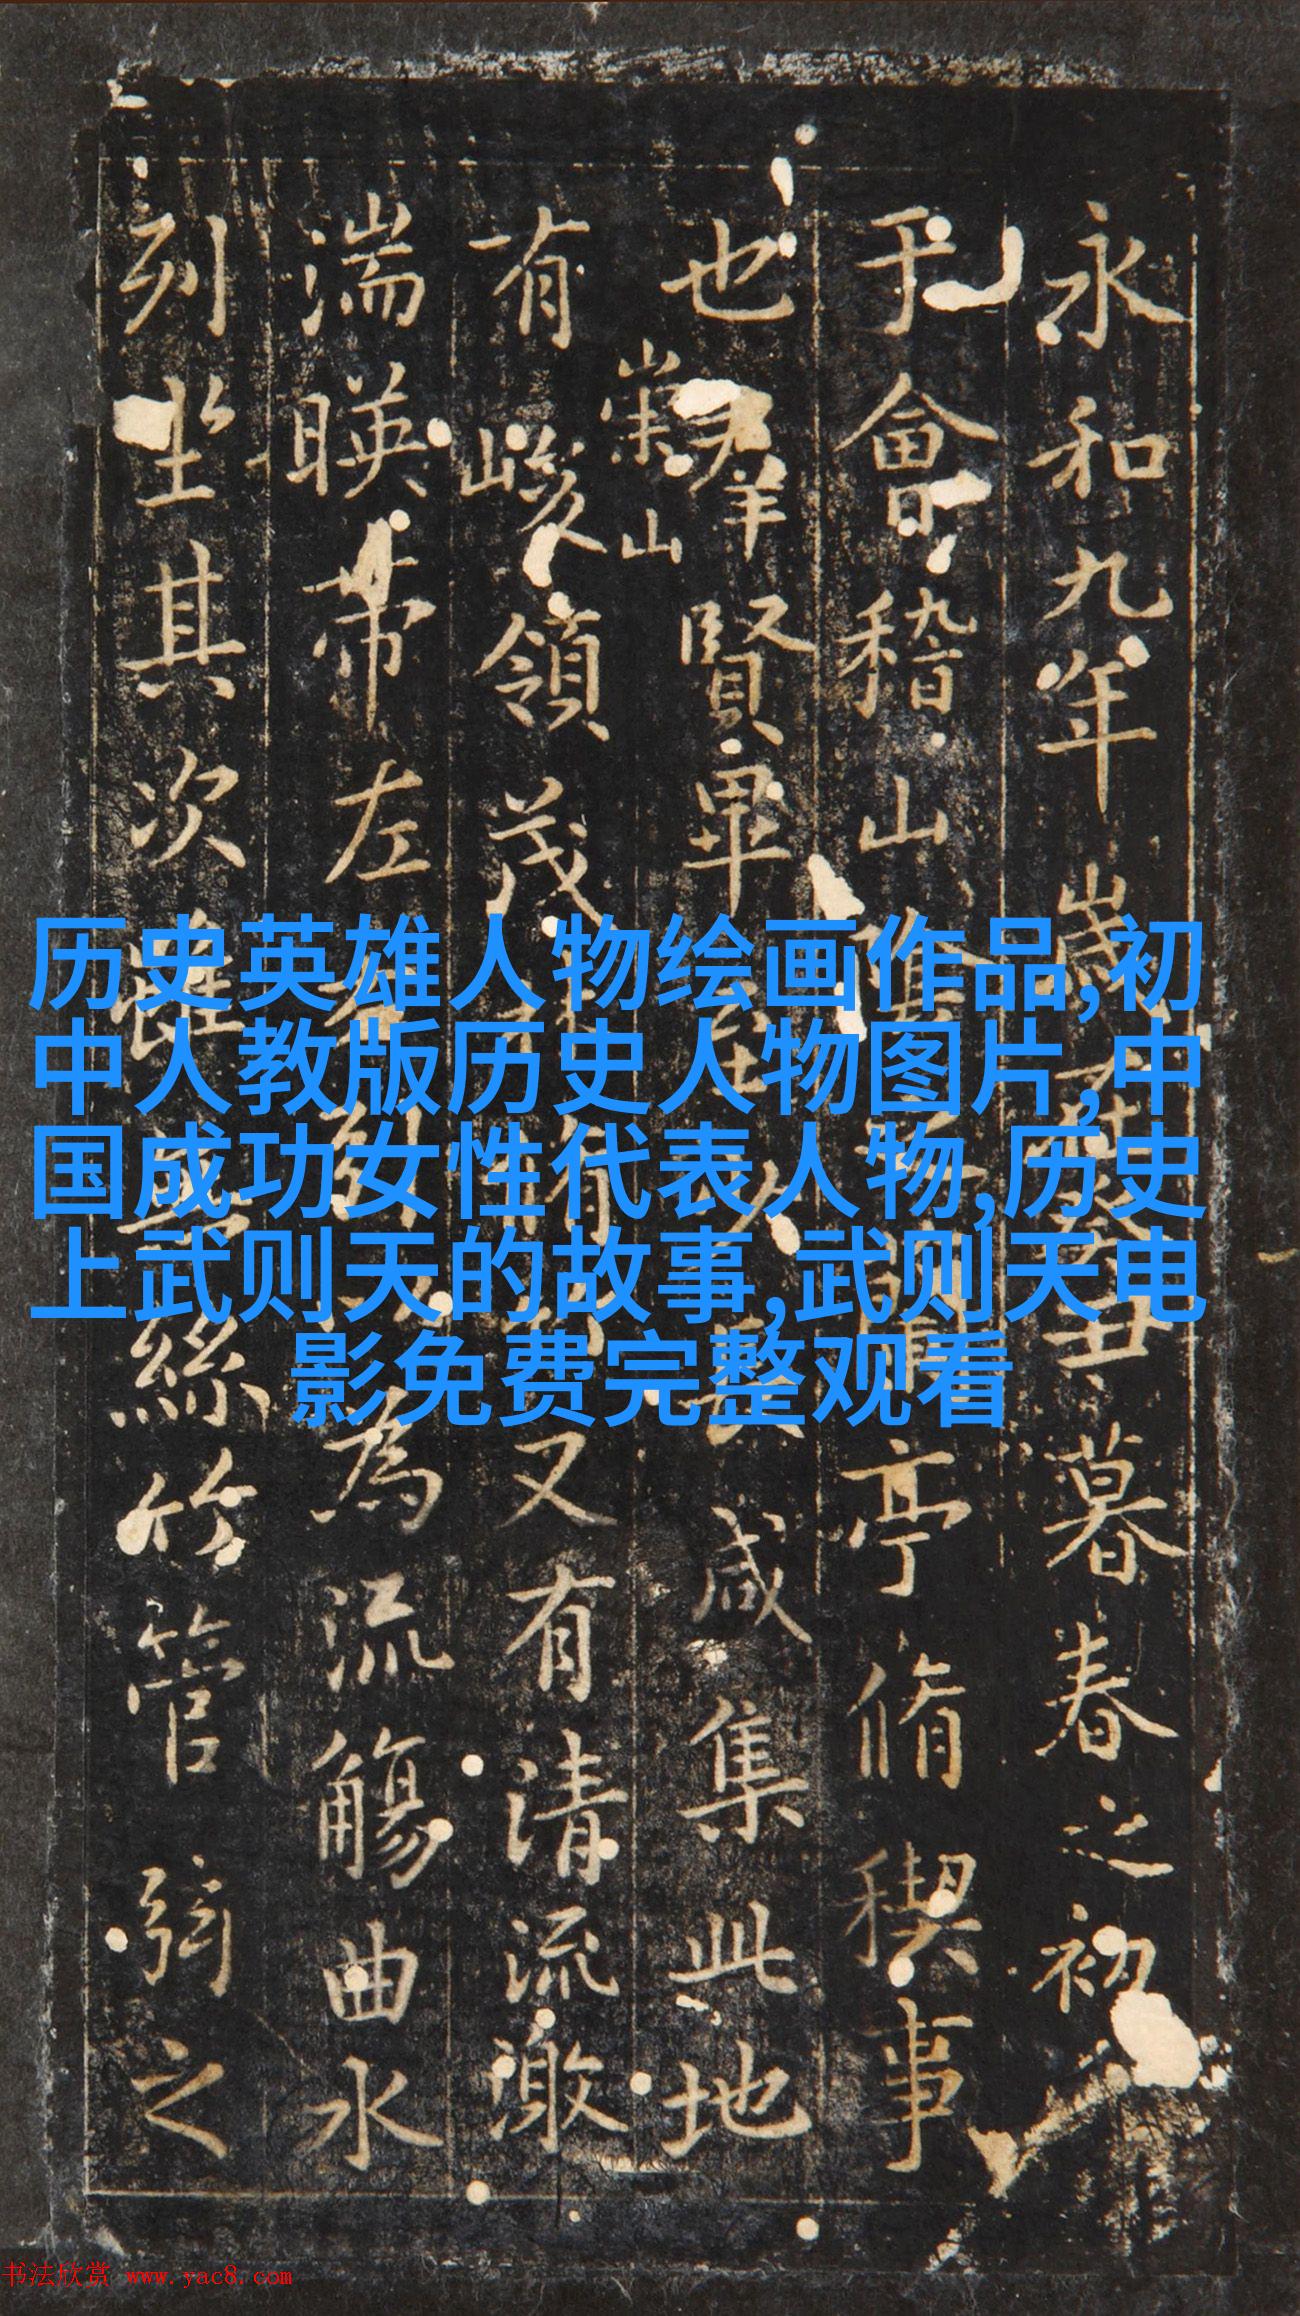 永和九年歲在癸丑暮春之初
于會稽山陰之蘭亭脩稧事
也羣賢畢至少長咸集此地
崇山
有峻領茂林脩竹又有清流激
湍暎帶左右引以為流觴曲水
列坐其次雖無絲竹管弦之
历史英雄人物绘画作品,初
中人教版历史人物图片,中
国成功女性代表人物,历史
上武则天的故事,武则天电
影免费完整观看
书法欣赏 www.yac8.com